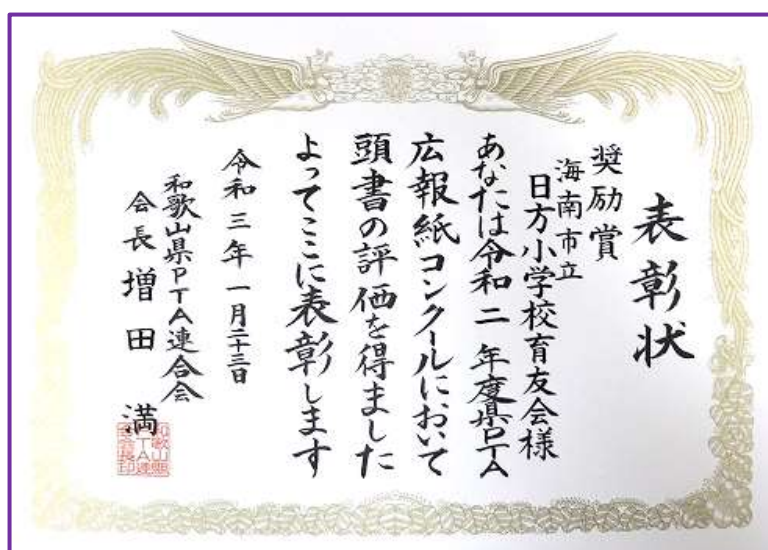 表彰状
奨励賞
海南市立
日方小学校育友会様
あなたは令和二年度県PTA
広報紙コンクールにおいて
頭書の評価を得ました
よってここに表彰します
令和三年一月二十三日
和歌山県PTA連合会
会長増田満